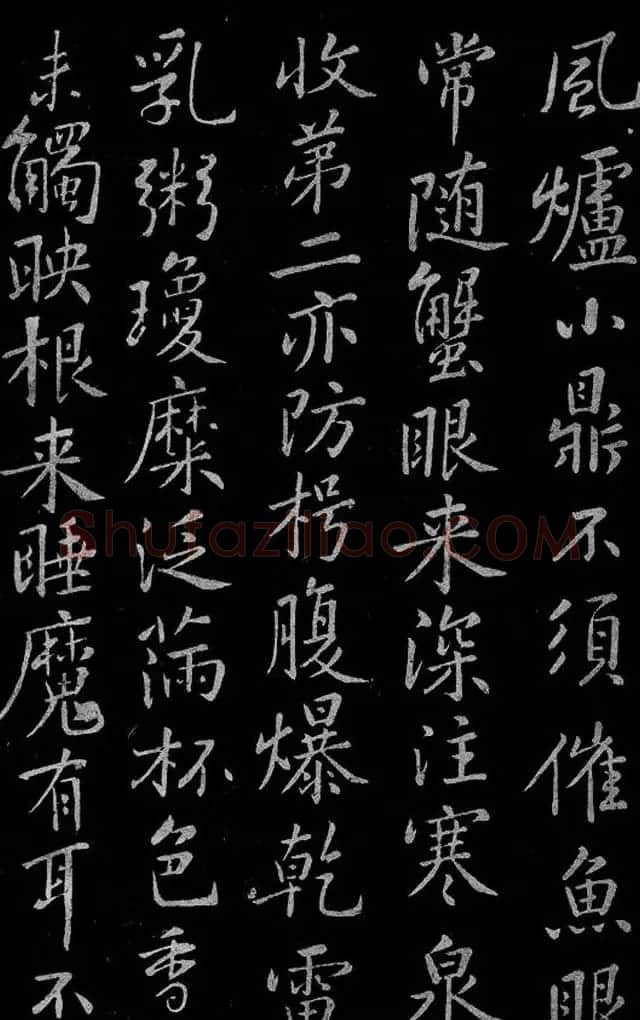 風爐小鼎不須催魚眼
常随蟹眼来深注寒泉
收弟二亦防枵腹爆乾雷
乳粥瓊糜泛滿杯色香
未觸映根来睡魔有耳不
Shufaziliao.COM